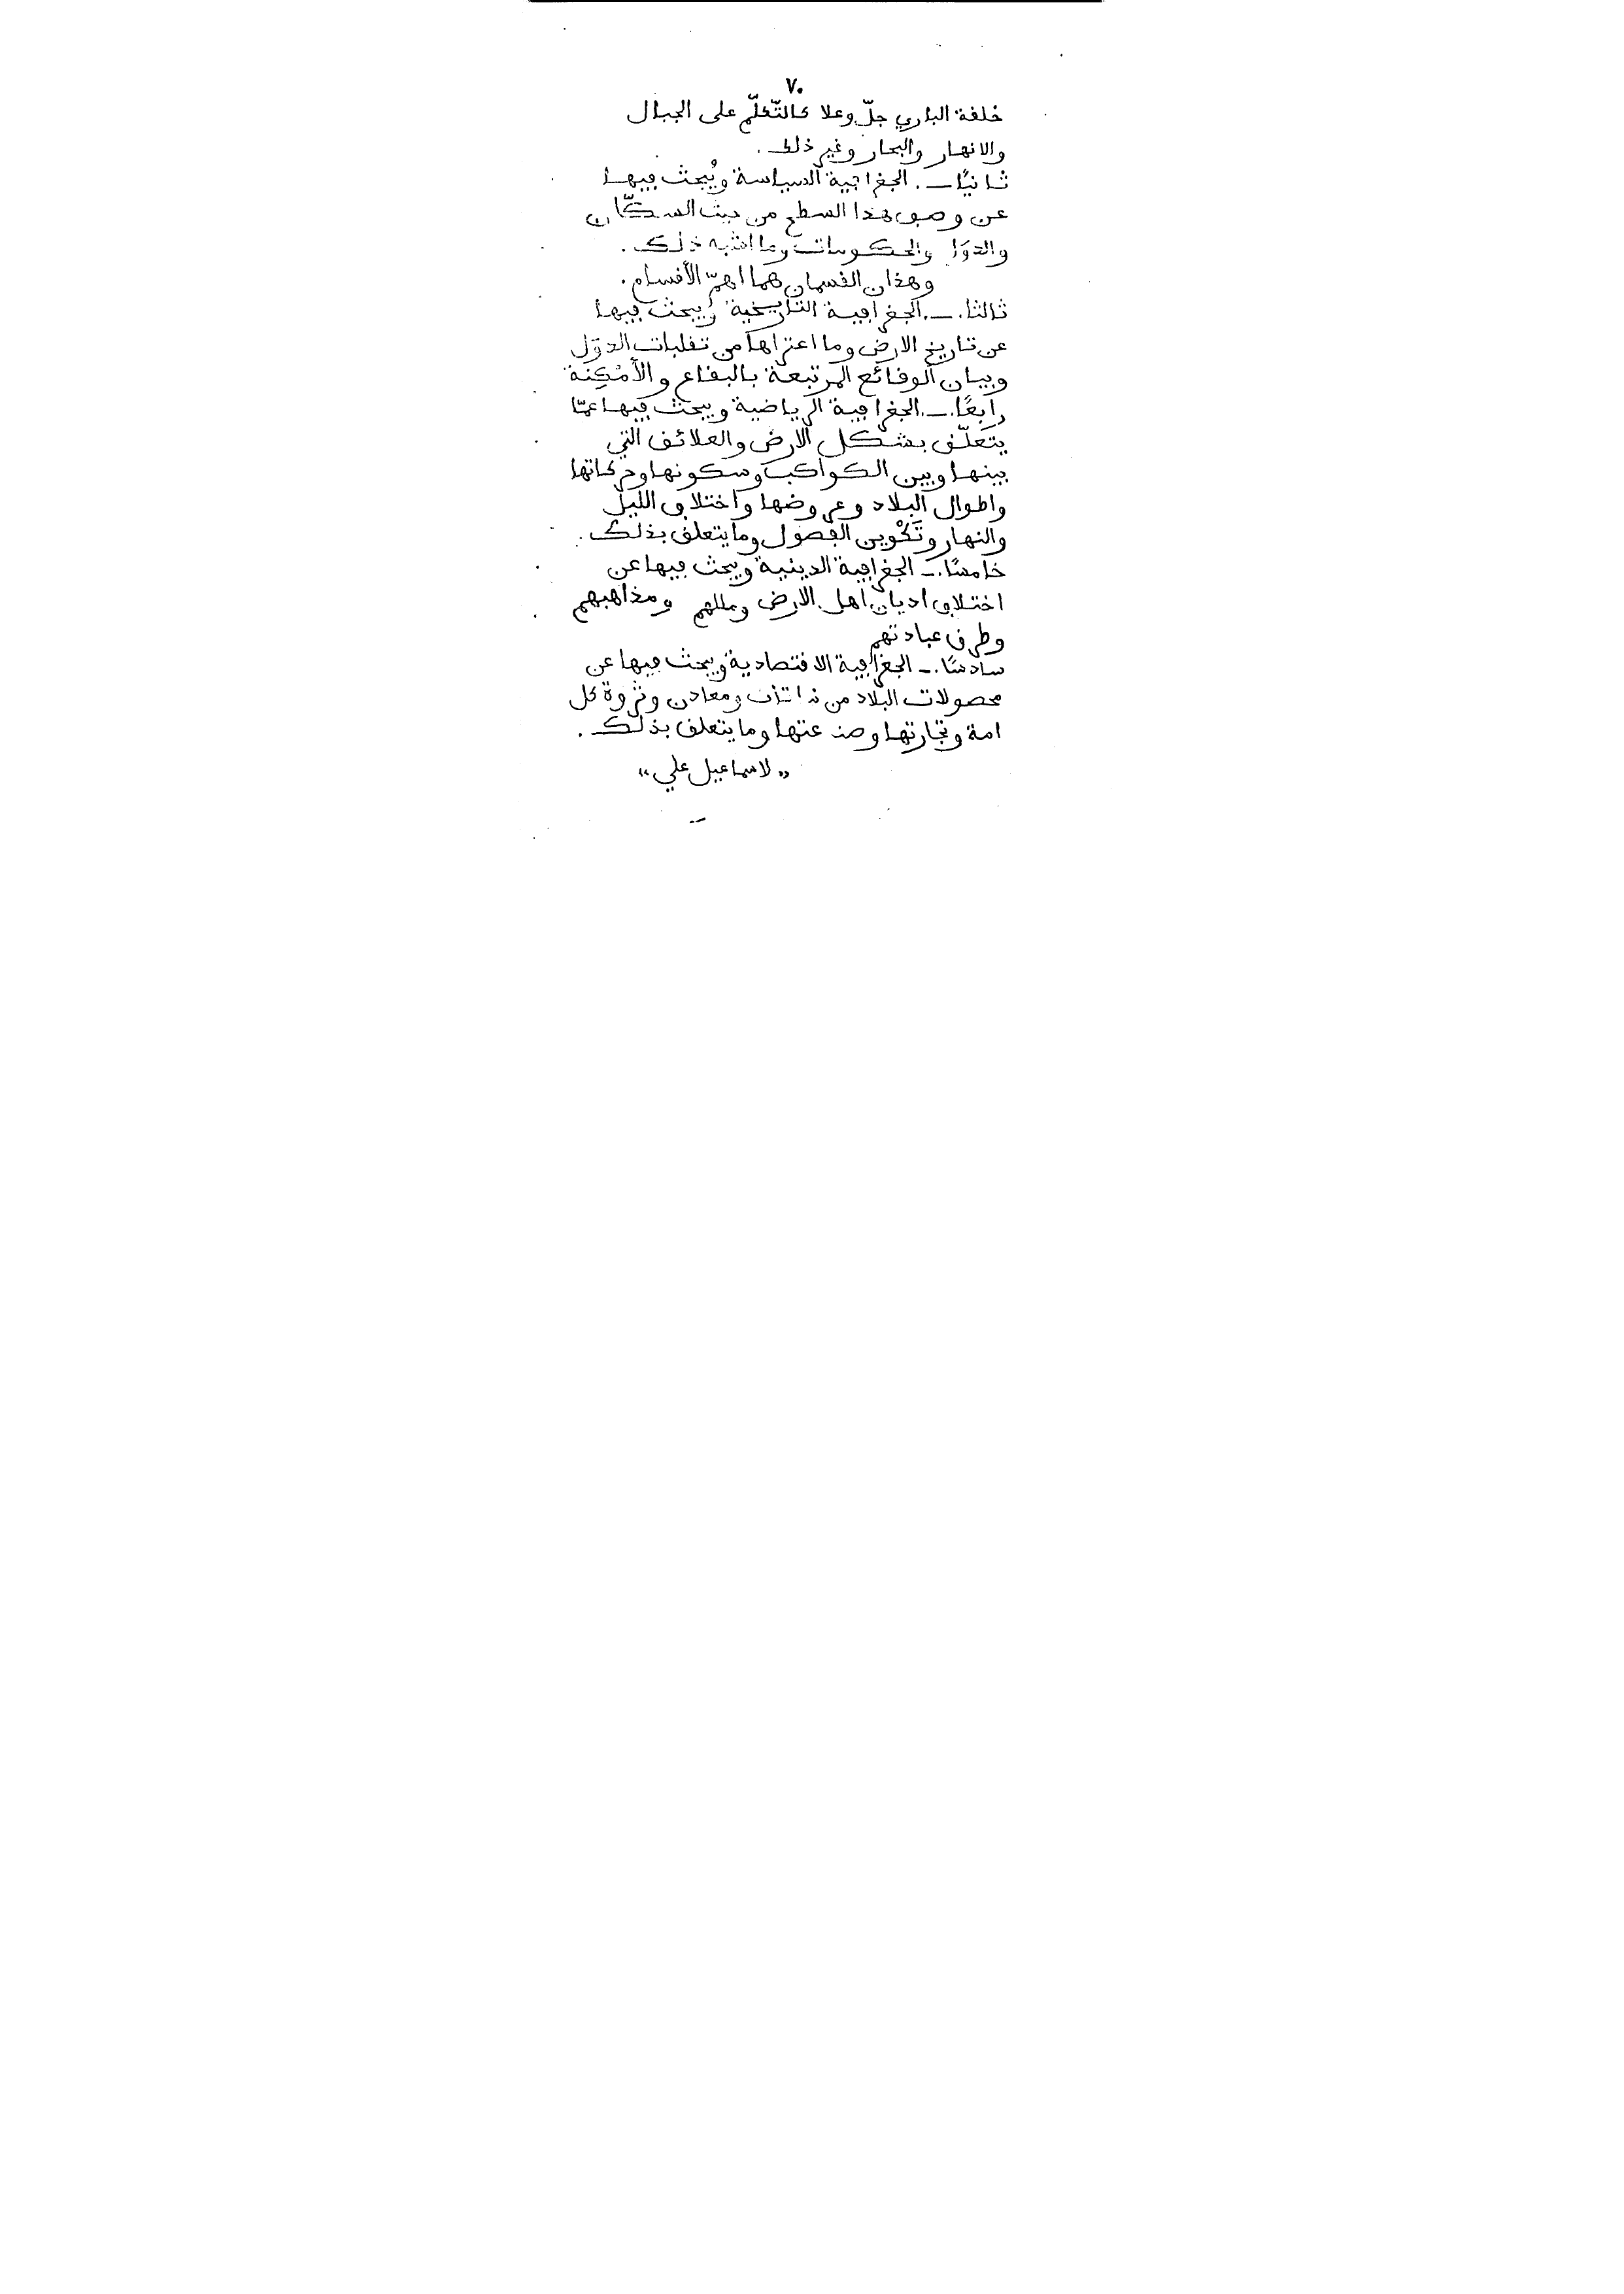 ٧٠
خلفة الباري جلّ وعلا كالتّكلّم على الجبال
والانهار والبحار وغير ذلك.
ثانيًا ـ. الجغرافية السياسة ويُبحث فيها
عن وصف هذا السطح من حيث السكّان
والدوَل والحكومات وما اشبه ذلك.
وهذان القسمان هما اهمّ الأقسام.
ثالثا. ـ. الجغرافية التاريخية ويبحث فيها
عن تاريخ الارض وما اعتراها من تقلبات الدوَل
وبيان الوقائع المرتبعة بالبقاع والأمْكِنة
رابعًا. ـ. الجغرافية الرياضية ويبحث فيها عمّا
يتعلّق بشكل الارض والعلائق التي
بينها وبين الكواكب وسكونها وحركاتها
واطوال البلاد وعروضها واختلاف الليل
والنهار وتَكْوين الفصول وما يتعلق بذلك.
خامسًا. ـ الجغرافية الدينية ويبحث فيها عن
اختلاف اديان اهل الارض ومللهم ومذاهبهم
وطرق عبادتهم
سادسًا. ـ الجغرافية الاقتصادية ويبحث فيها عن
محصولات البلاد من ومعادن وثروة كل
امة وتجارتها وصنعتها وما يتعلق بذلك.
«لاسماعيل علي»